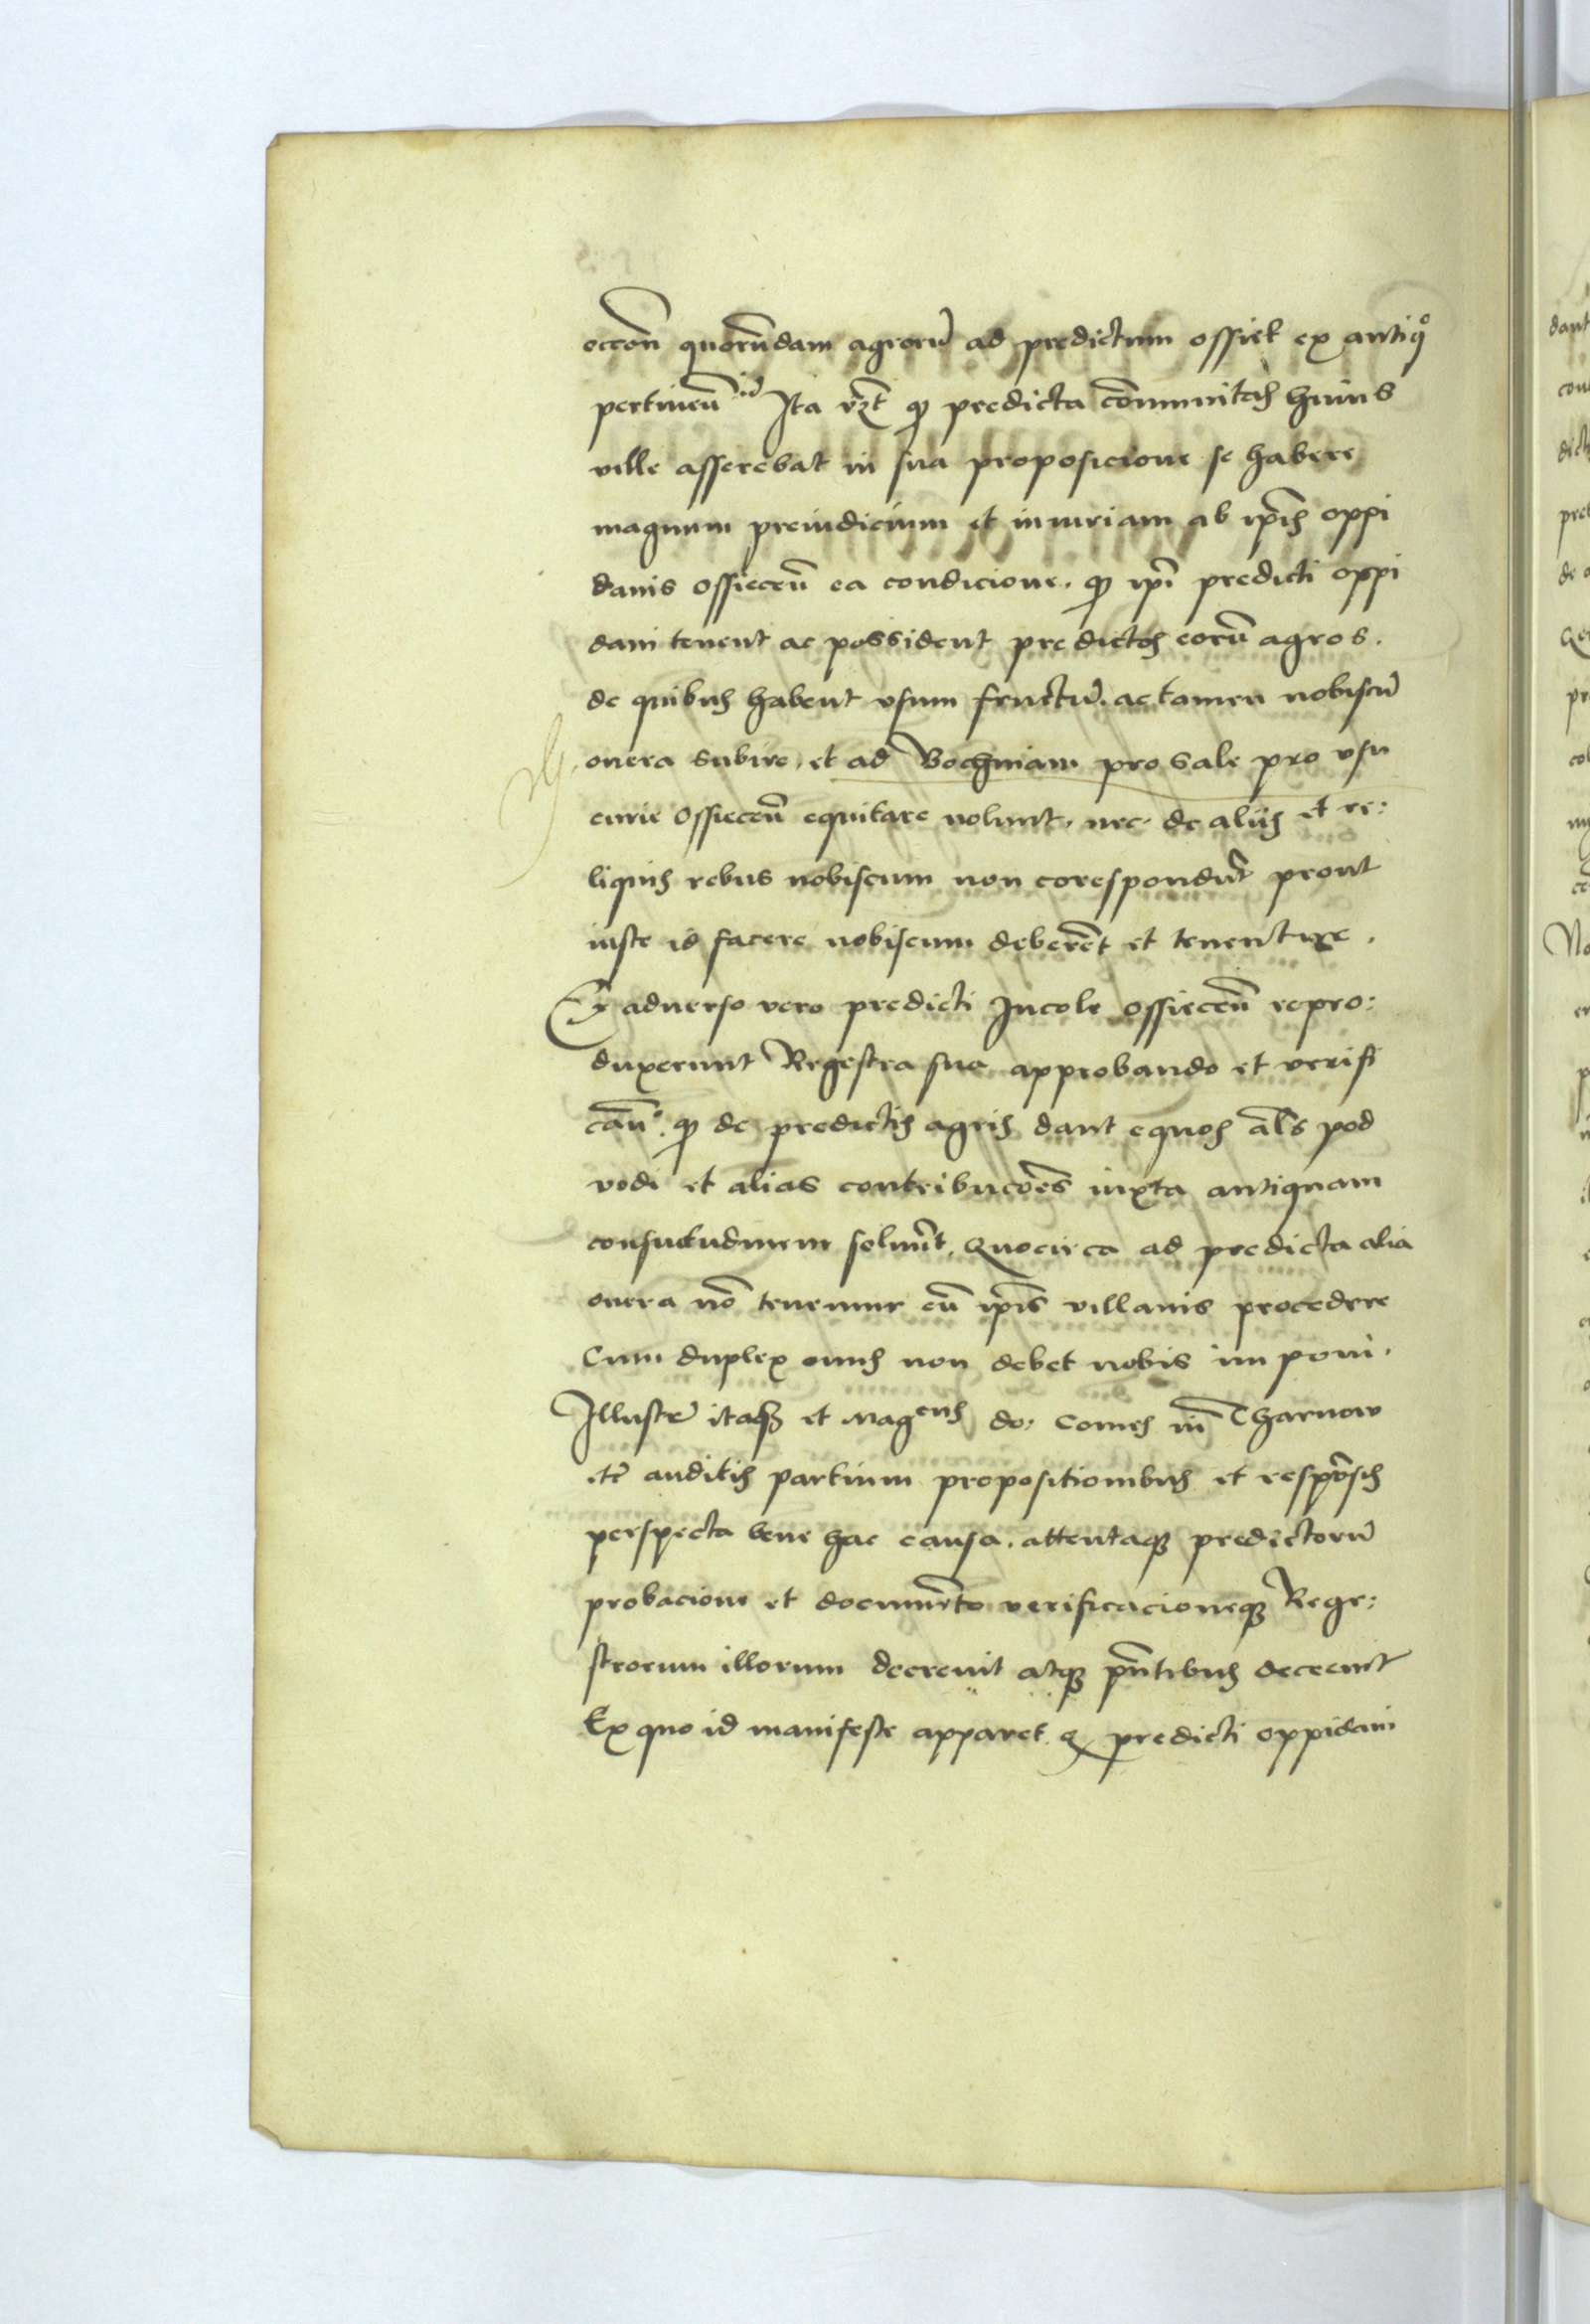 occōn quorūdam agrorū ad predictum ossiek ex antiqo
pertineñ Ita vzt qp predicta cōmunitas huius
ville asserebat in sua proposicione se habere
magnum preiudicium et iniuriam ab ip̄is oppi
danis ossieceñ ea condicione. qp ip̄i predicti oppi
dani tenent ac possident predictos eorū agros.
de quibus habent vsum fructū. ac tamen nobiscū
onera subire, et ad Bochniam pro sale pro vsu
curie Ossieceñ equitare nolunt, nec de aliis et re:
liquis rebus nobiscum non corespondūt prout
iuste id facere nobiscum deberēt et tenentur.
Ex aduerso vero predicti Incole ossieceñ repro:
duxerunt Regestra sua approbando et verifi
cañ. qp de predictis agris dant equos als pod
vodi et alias contribucōes iuxta antiquam
consuetudinem soluūt. Quocirca ad predicta alia
onera nō tenemur cū ip̄is villanis procedere
Cum duplex onus non debet nobis imponi.
Illustr itaqz et Magcus do: Comes in Tharnow
etc auditis partium propositionibus et respōsis
perspecta bene hac causa. attentaqz predictorū
probacione et documēto verificacioneqz Rege:
strorum illorum decreuit atqz pn̄tibus decernit
Ex quo id manifeste apparet q predicti oppidani